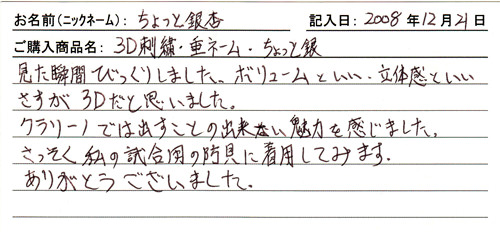 お名前(ニックネーム): ちょっと銀杏 記入日: 2008年12月21日
ご購入商品名: 3D刺繍・垂ネーム・ちょっと銀
見た瞬間びっくりしました。ボリュームといい・立体感といい
さすが3Dだと思いました。
クラリーノでは出すことの出来ない魅力を感じました。
さっそく私の試合用の防具に着用してみます.
ありがとうございました。